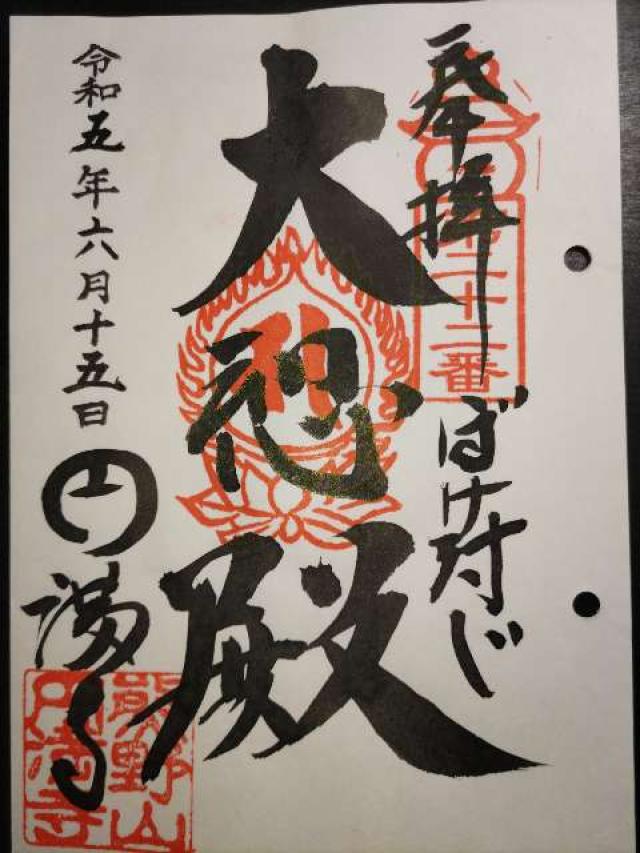 奉拝
第二十二番
ぼけ封じ
大悲殿
令和五年六月十五日
円満寺
熊野山
円満寺